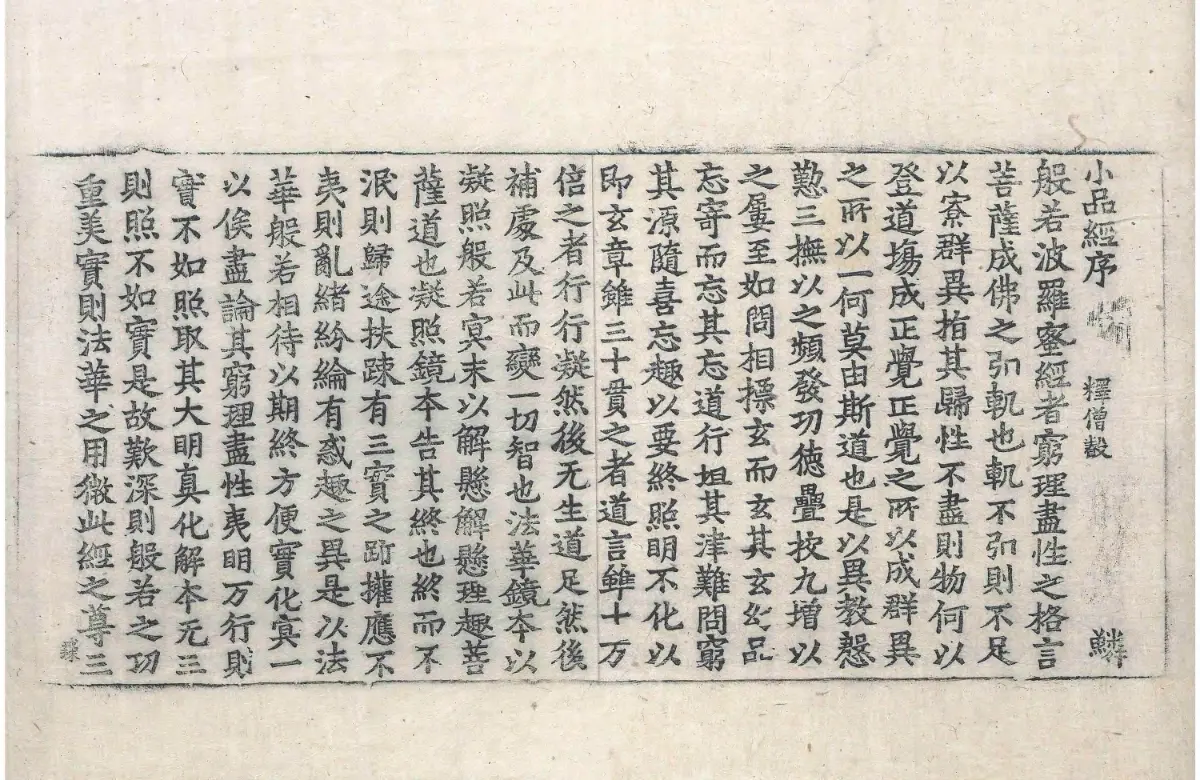 小品經序 釋僧叡 鱗
般若波羅蜜經者窮理盡性之格言
菩薩成佛之弘軌也軌不弘則不足
以寮群異指其歸性不盡則物何以
登道場成正覺正覺之所以成群異
之所以一何莫由斯道也是以異教慇
懃三撫以之頻發功德疊挍九增以
之屢至如問相摽玄而玄其玄幻品
忘寄而忘其忘道行坦其津難問窮
其源隨喜忘趣以要終照明不化以
即玄章雖三十貫之者道言雖十万
倍之者行行凝然後无生道足然後
補處及此而變一切智也法華鏡本以
凝照般若冥末以解懸解懸理趣菩
薩道也凝照鏡本告其終也終而不
泯則歸途扶踈有三實之跡攉應不
夷則亂緒紛綸有惑趣之異是以法
華般若相待以期終方便實化冥一
以俟盡論其窮理盡性夷明万行則
實不如照取其大明真化解本无三
則照不如實是故歎深則般若之功
重美實則法華之用微此經之尊三